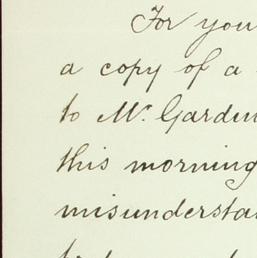 For you
a copy of a
to Mr. Gardin
this morning
misunderstan